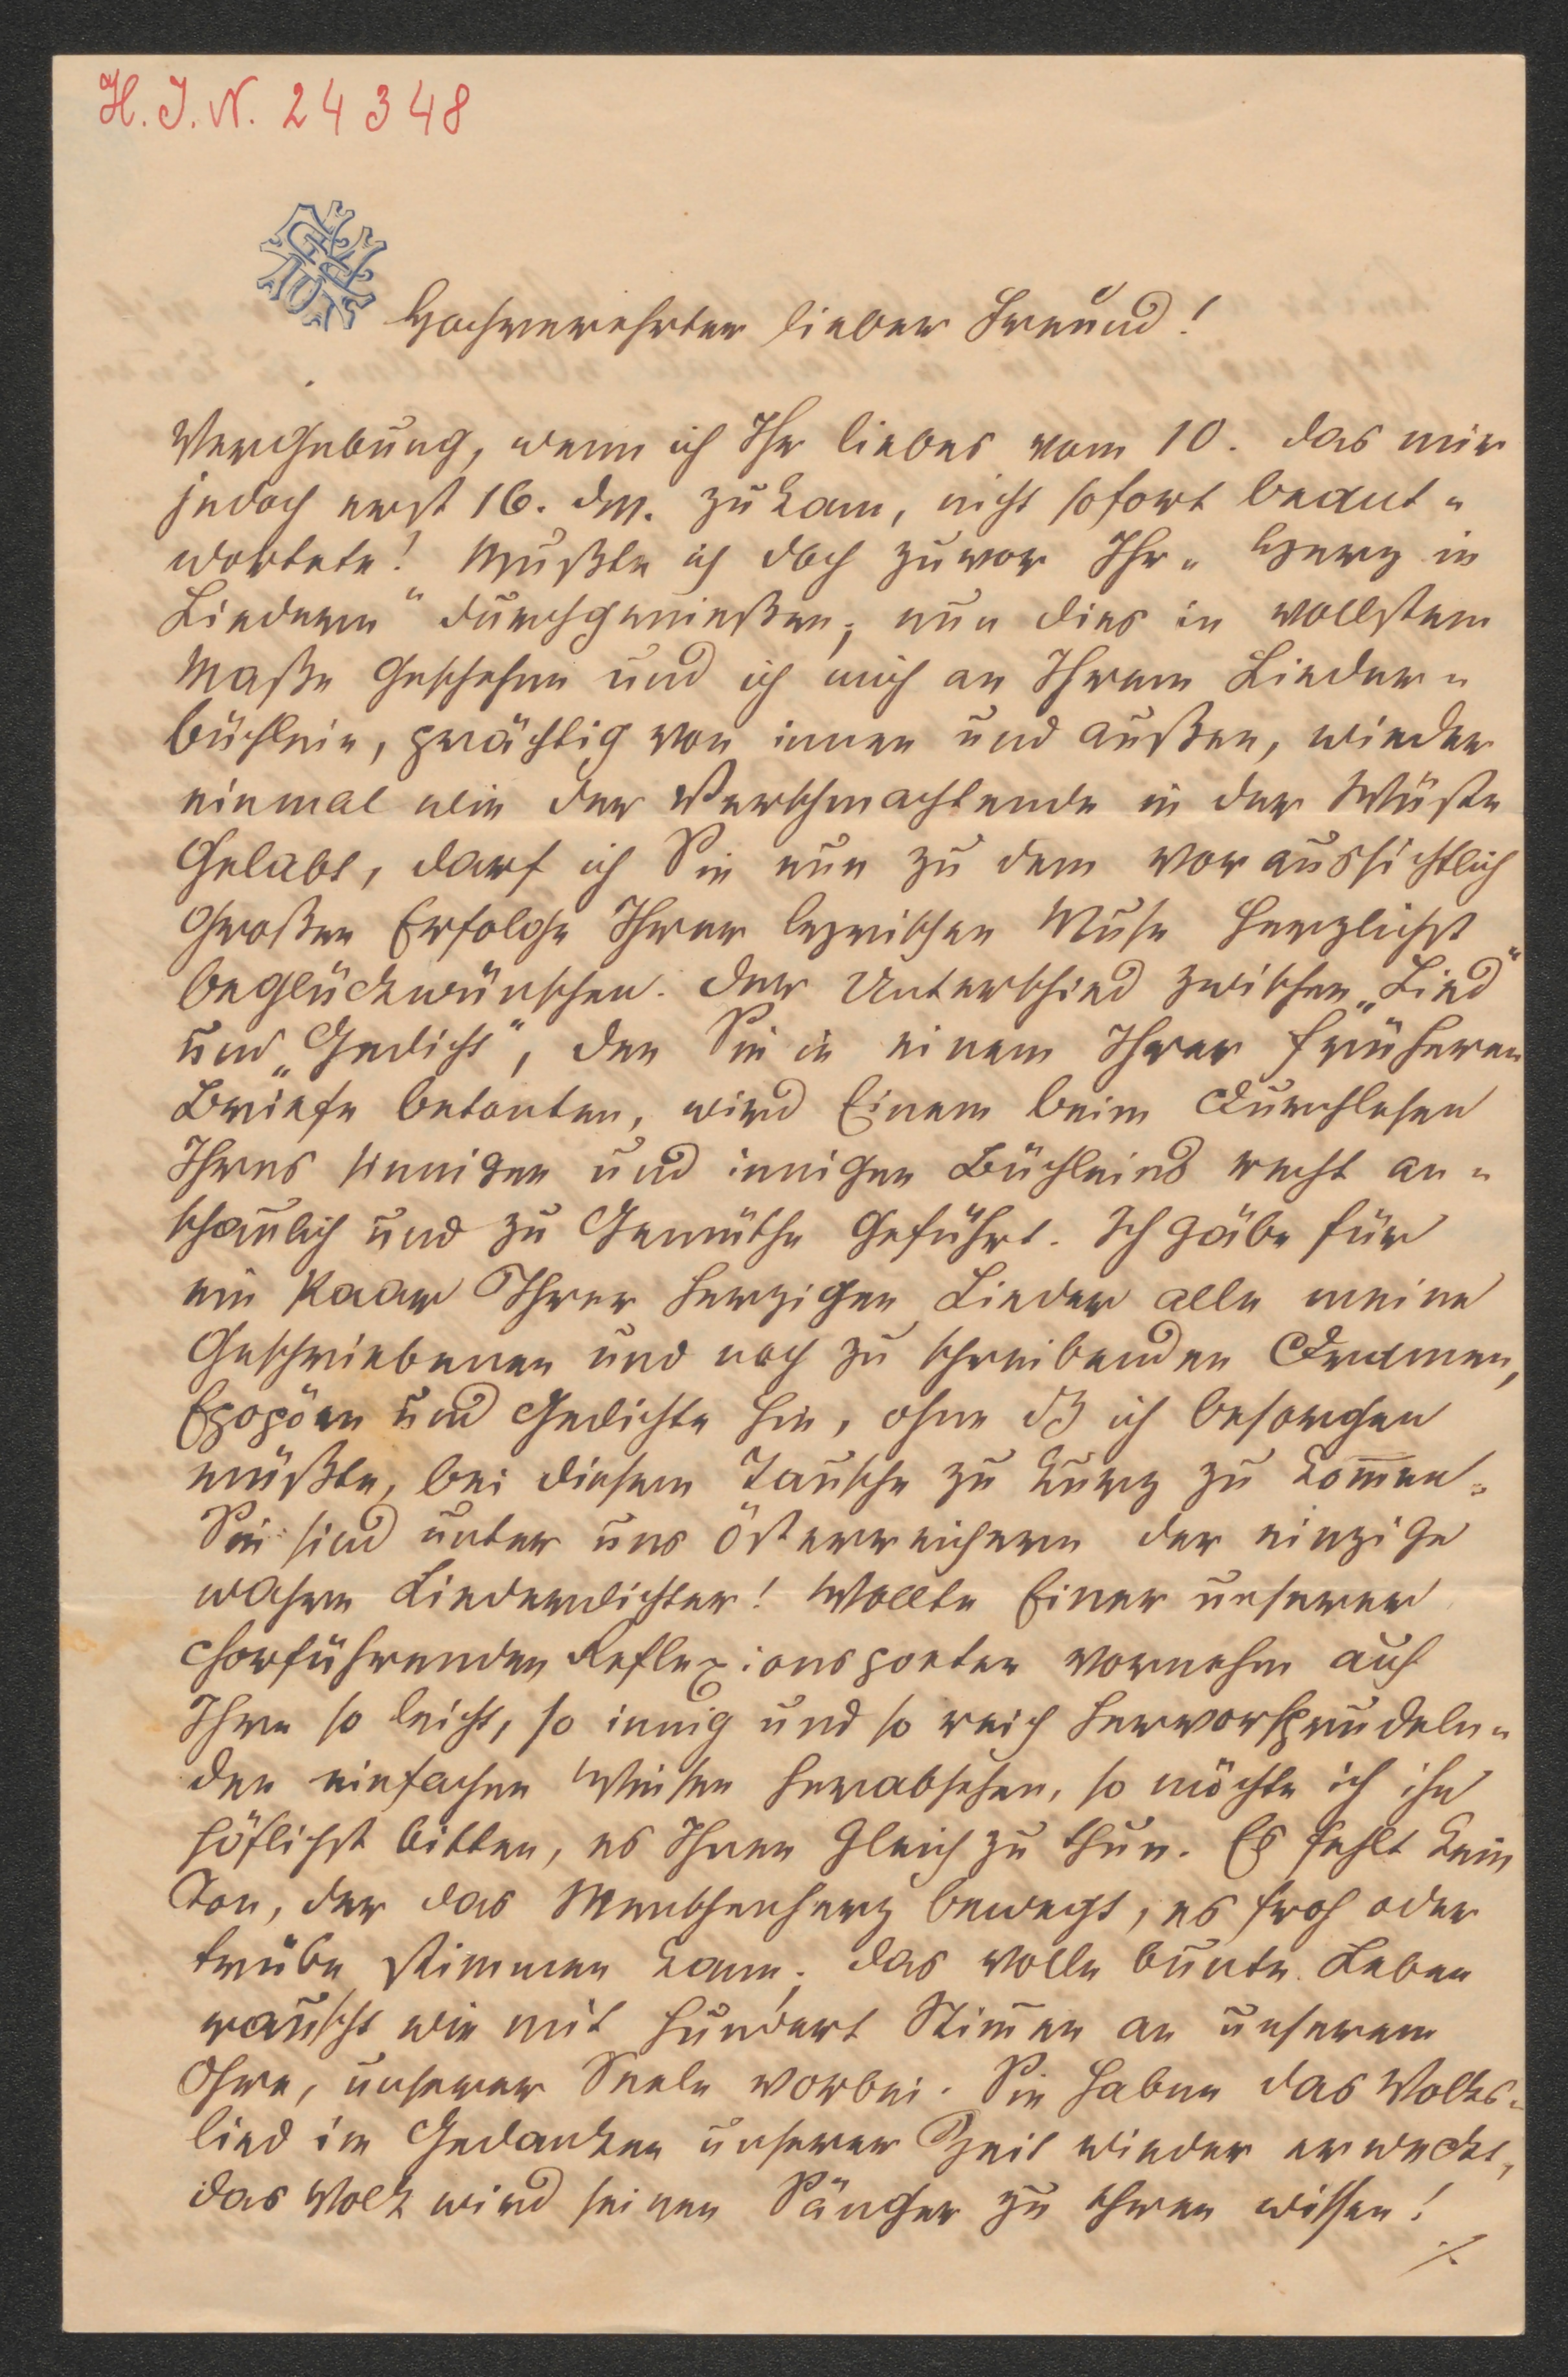 H. I. N. 24348
Hochverehrter lieber Freund!
Vergebung, wenn ich Ihr liebes vom 10. das mir
jedoch erst 16. dM. zukam, nicht sofort beant-
wortete! Mußte ich doch zuvor Ihr „Herz in
Liedern“ durchgenießen; nun dies in vollstem
Maße geschehen und ich mich an Ihrem Lieder-
büchlein, prächtig von innen und außen, wieder
einmal wie der Verschmachtende in der Wüste
gelabt, darf ich Sie nun zu dem voraussichtlich
großen Erfolge Ihrer lyrischen Muse herzlichst
beglückwünschen. Der Unterschied zwischen „Lied“
und „Gedicht“, den Sie in einem Ihrer früheren
Briefe betonten, wird Einem beim Durchlesen
Ihres sinnigen und innigen Büchleins recht an-
schaulich und zu Gemüthe geführt. Ich gäbe für
ein Paar Ihrer herzigen Lieder alle meine
geschriebenen und noch zu schreibenden Dramen,
Epopöen und Gedichte hin, ohne dß ich besorgen
müßte, bei diesem Tausche zu kurz zu kom̄en.
Sie sind unter uns Österreichern der einzige
wahre Liederdichter! Wollte Einer unserer
chorführenden Reflexionspoeten vornehm auf
Ihre so leicht, so innig und so reich hervorsprudeln-
den einfachen Weisen herabsehen, so möchte ich ihn
höflichst bitten, es Ihnen gleich zu thun. Es fehlt kein
Ton, der das Menschenherz bewegt, es froh oder
trübe stimmen kann; das volle bunte Leben
rauscht wie mit hundert Stim̄en an unserem
Ohre, unserer Seele vorbei. Sie haben das Volks-
lied im Gedanken unserer Zeit wieder erweckt,
das Volk wird seinen Sänger zu ehren wissen!
./.